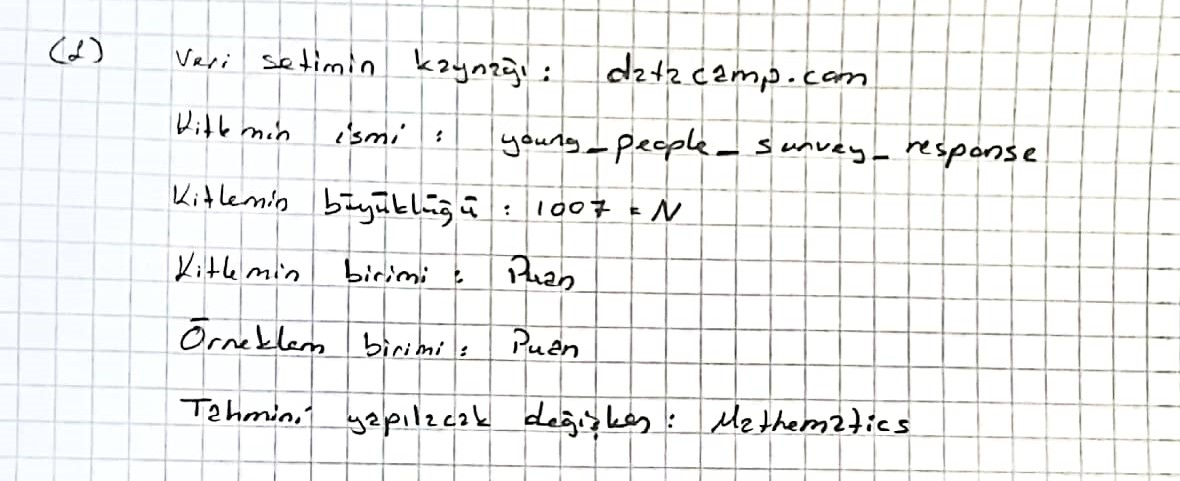 (1) Veri setimin kaynağı: datacamp.com
Kitlemin ismi: young_people_survey_response
Kitlemin büyüklüğü: 1007 = N
Kitlemin birimi: Puan
Örneklem birimi: Puan
Tahmini yapılacak değişken: Mathematics